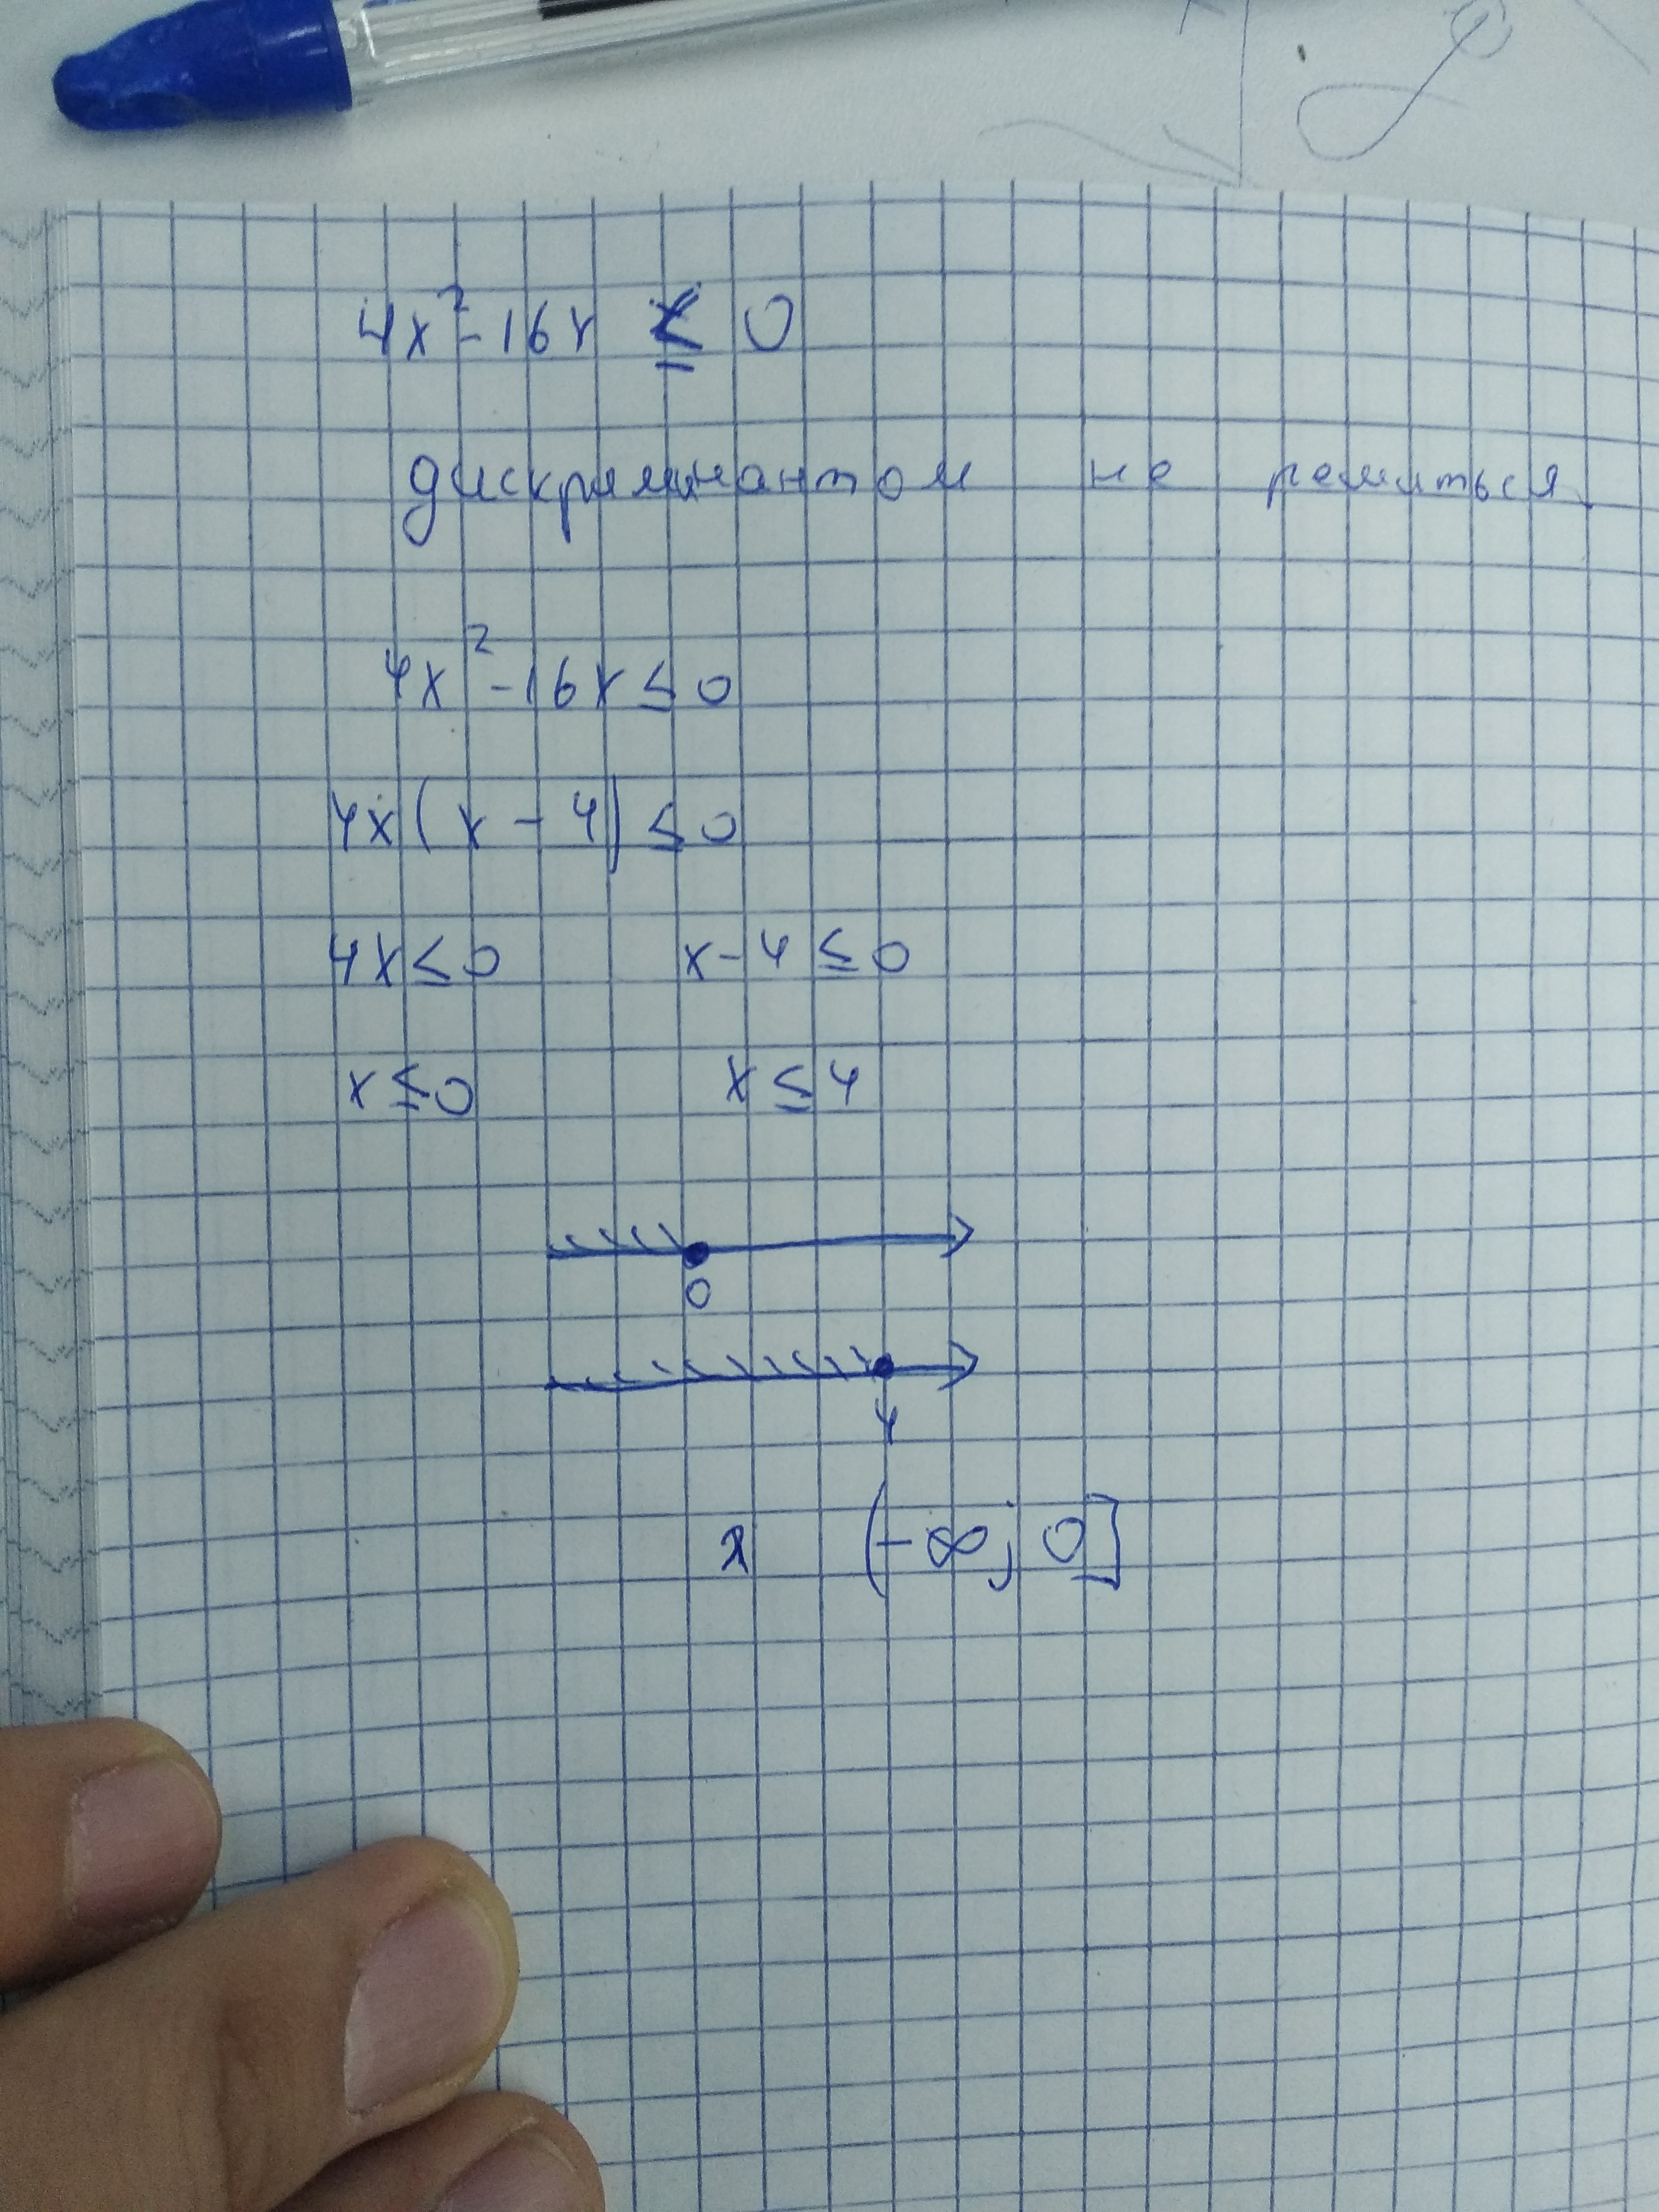 4x²-16x ≤ 0
дискриминантом не решиться
4x²-16x≤0
4x(x-4)≤0
4x≤0 x-4≤0
x≤0 x≤4
0
4
x (-∞; 0]